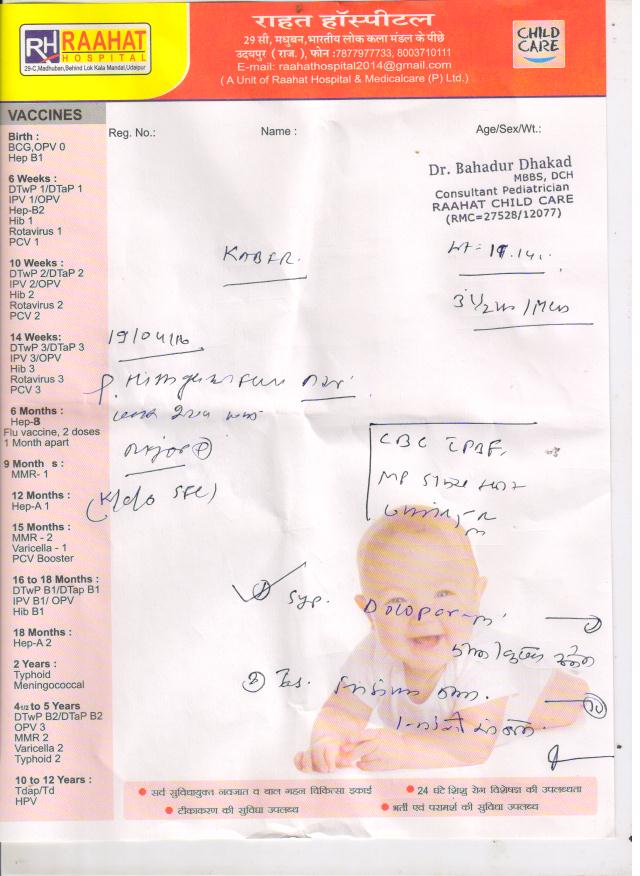 राहत हॉस्पीटल
29 सी, मधुबन, भारतीय लोक कला मंडल के पीछे
उदयपुर ( राज.), फोन :7877977733, 8003710111
E-mail: raahathospital2014@gmail.com
( A Unit of Raahat Hospital & Medicalcare (P) Ltd.)
RH RAAHAT
HOSPITAL
29-C,Madhuban,Behind Lok Kala Mandal,Udaipur
CHILD
CARE
VACCINES
Reg. No.: Name : Age/Sex/Wt.:
Birth :
BCG,OPV 0
Hep B1
6 Weeks :
DTwP 1/DTaP 1
IPV 1/OPV
Hep-B2
Hib 1
Rotavirus 1
PCV 1
10 Weeks :
DTwP 2/DTaP 2
IPV 2/OPV
Hib 2
Rotavirus 2
PCV 2
14 Weeks:
DTwP 3/DTaP 3
IPV 3/OPV
Hib 3
Rotavirus 3
PCV 3
6 Months :
Hep-B
Flu vaccine, 2 doses
1 Month apart
9 Month s :
MMR- 1
12 Months :
Hep-A 1
15 Months :
MMR - 2
Varicella - 1
PCV Booster
16 to 18 Months :
DTwP B1/DTap B1
IPV B1/ OPV
Hib B1
18 Months :
Hep-A 2
2 Years :
Typhoid
Meningococcal
4 1/2 to 5 Years
DTwP B2/DTaP B2
OPV 3
MMR 2
Varicella 2
Typhoid 2
10 to 12 Years :
Tdap/Td
HPV
Dr. Bahadur Dhakad
MBBS, DCH
Consultant Pediatrician
RAAHAT CHILD CARE
(RMC=27528/12077)
KABER.
CBC
MP
Syp.
सर्व सुविधायुक्त नवजात व बाल गहन चिकित्सा इकाई
24 घंटे शिशु रोग विशेषज्ञ की उपलब्धता
टीकाकरण की सुविधा उपलब्ध
भर्ती एवं परामर्श की सुविधा उपलब्ध